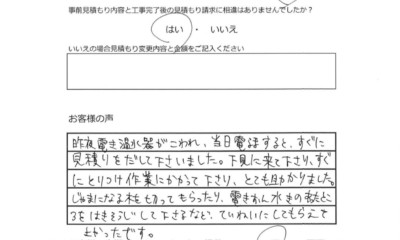 事前見積もり内容と工事完了後の見積もり請求に相違はありませんでしたか?
はい ・ いいえ
いいえの場合見積もり変更内容と金額をご記入ください
お客様の声
昨夜電き温水器がこわれ、当日電話すると、すぐに
見積りをだして下さいました。下見に来て下さり、すぐ
にとりつけ作業にかかって下さり、とても助かりました。
じゃまになる木も切ってもらったり、電きおん水きの
るをはきそうじして下さるなど、ていねいにしてもらえて
よかったです。